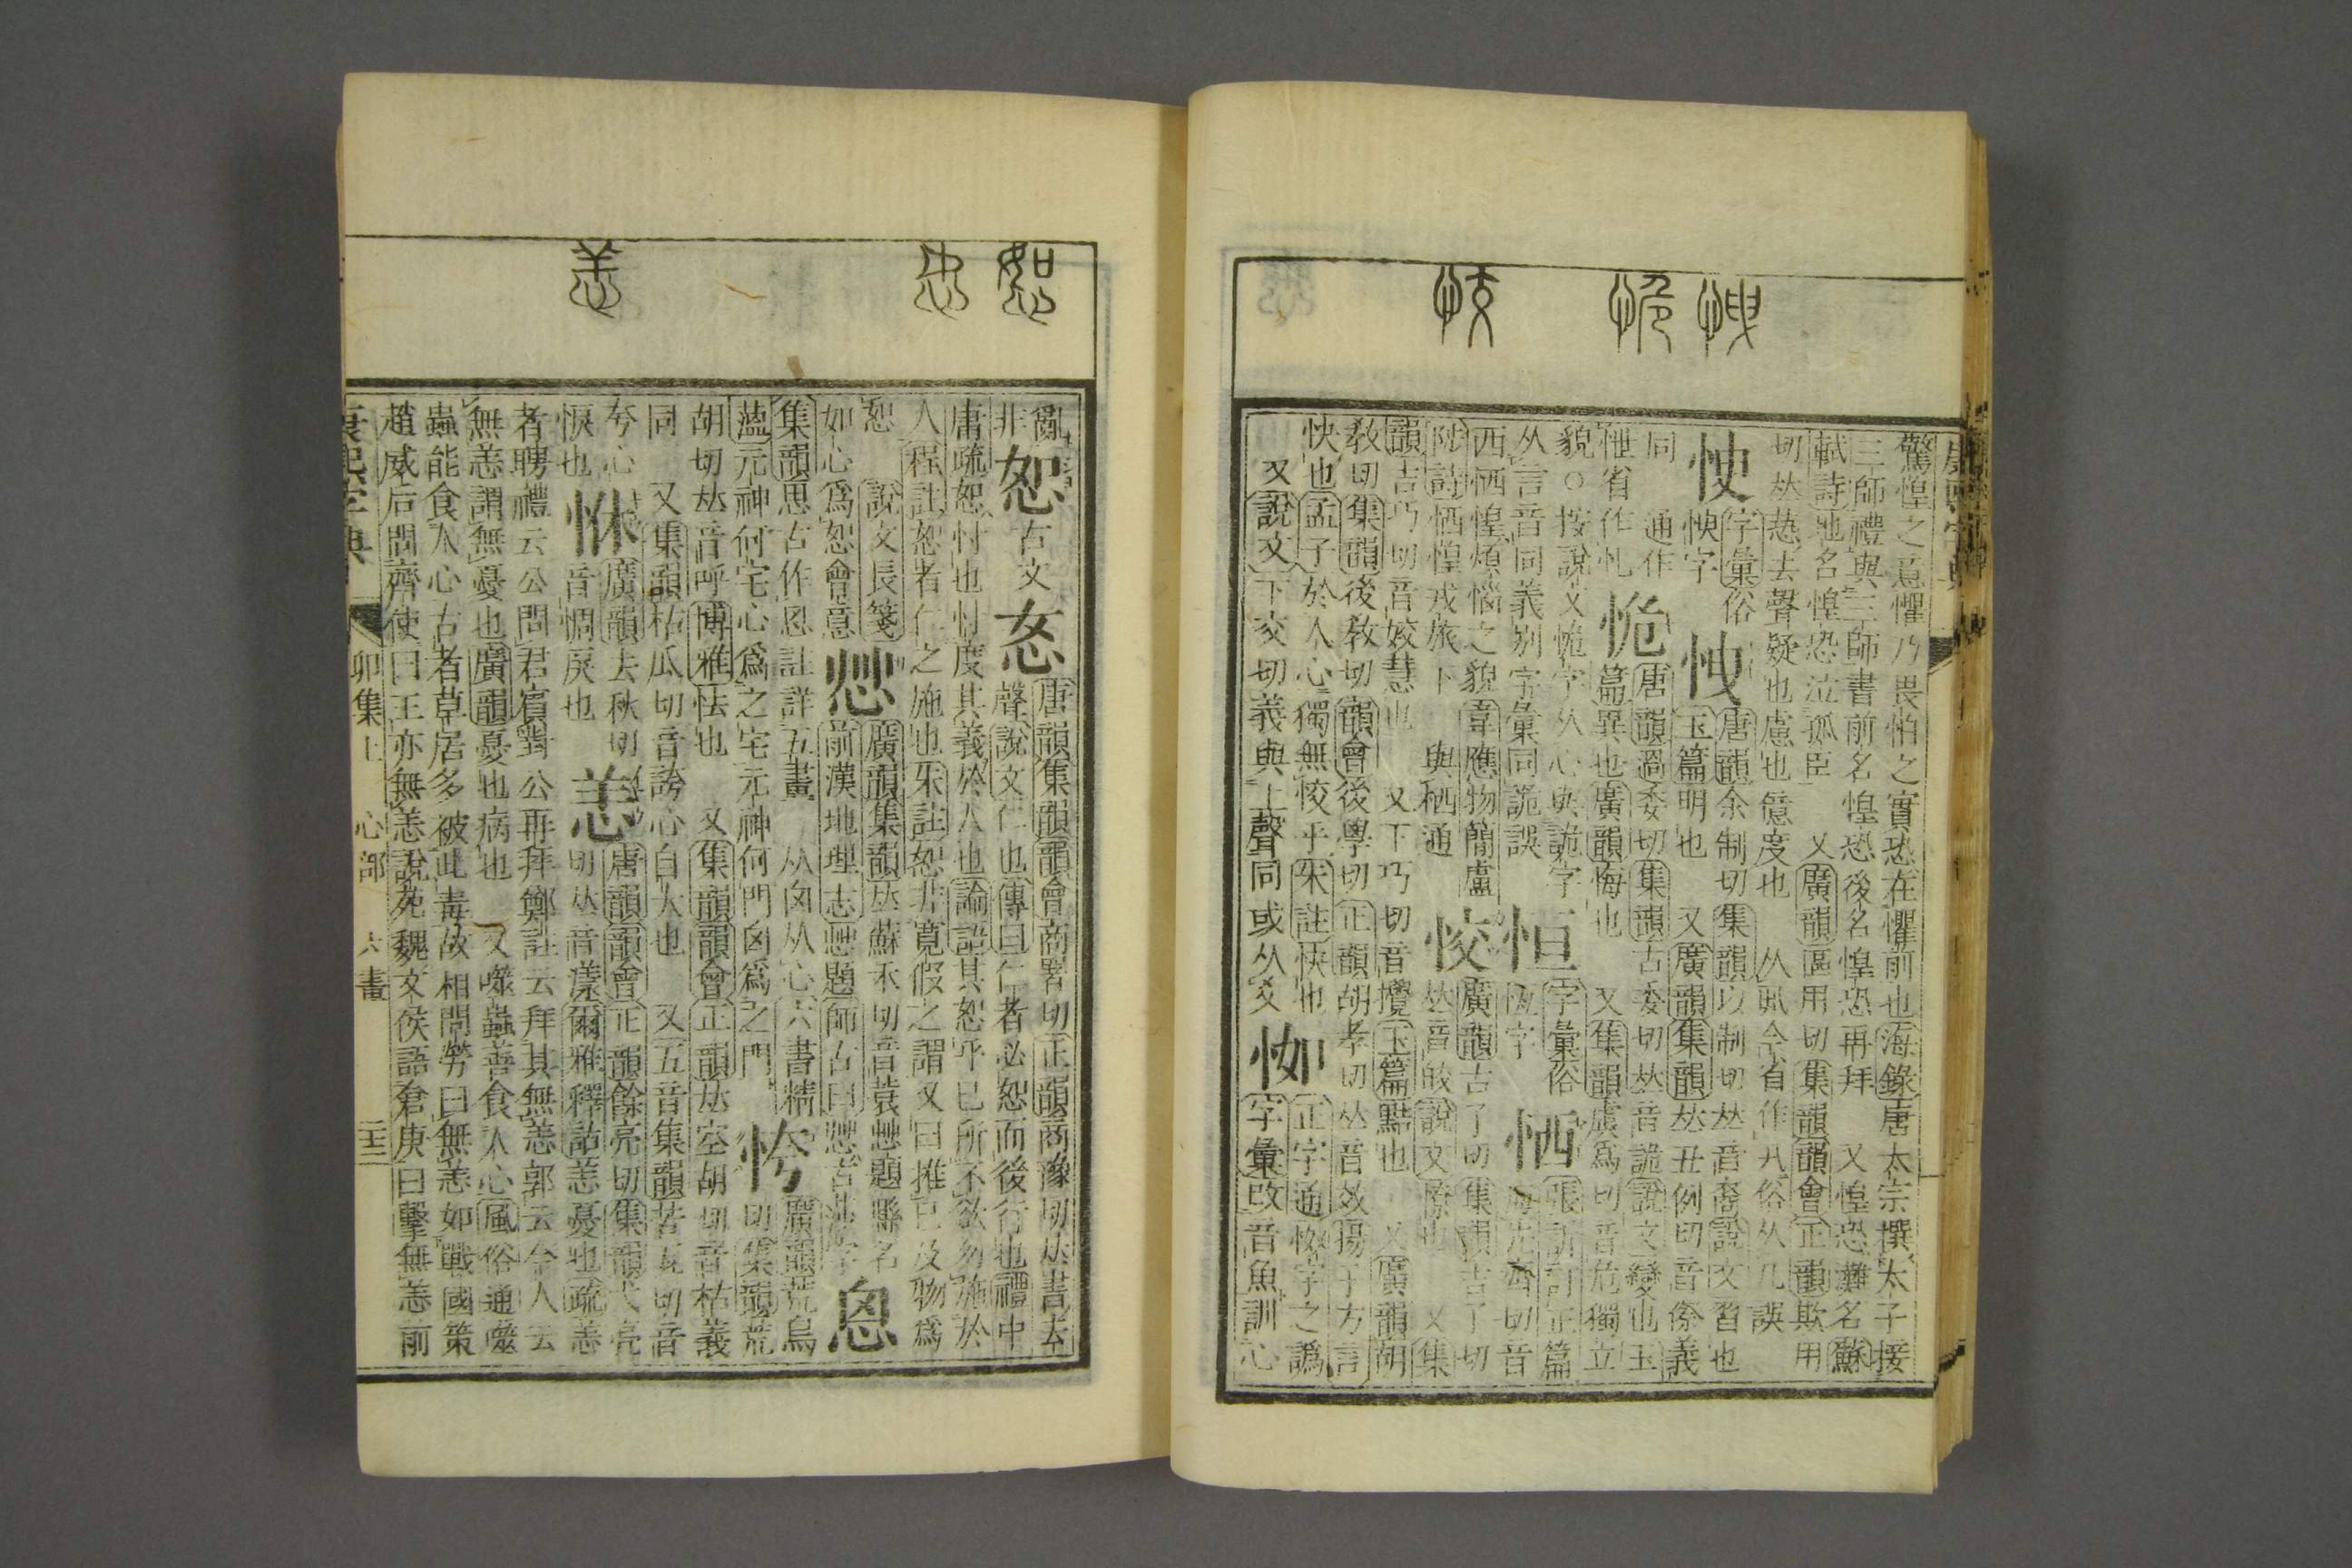 康熙字典
驚惶之意懼乃畏怕之實恐在懼前也海錄唐太宗撰太子接
三師禮與三師書前名惶恐後名惶恐再拜 又惶恐灘名蘇
軾詩地名惶恐泣孤臣 又廣韻區用切集韻韻會正韻欺用
切𠀤恐去聲疑也慮也億度也 今省作 俗从凡誤
字彙俗 唐韻余制切集韻以制切𠀤音裔說文習也
字 玉篇明也 又廣韻集韻𠀤丑例切音傺義
同 通作 唐韻過委切集韻古委切𠀤音詭說文變也玉
省作 恑篇異也廣韻悔也 又集韻虞爲切音危獨立
貌○按說文恑字从心與詭字 恒字彙俗 恓張訂正篇
从言音同義別字彙同詭誤 恆字 海先齊切音
恓恓惶煩惱之貌韋應物簡盧 恔廣韻古了切集韻吉了切
陟詩恓惶戎旅下 與栖通 𠀤音皎說文憭也 又集
韻吉巧切音姣慧也 又下巧切音攪玉篇黠也 又廣韻胡
敎切集韻後敎切韻會後學切正韻胡孝切𠀤音效揚子方言
快也孟子於人心獨無恔乎朱註快也 正字通 字之譌
又說文下交切義與上聲同或从爻 㤉字彙攺音魚訓心
恕
忠
恙
亂 恕古文㣽唐韻集韻韻會商署切正韻商豫切𠀤書去
非 聲說文仁也傳曰仁者必恕而後行也禮中
庸疏恕忖也忖度其義於人也論語其恕乎己所不欲勿施於
人程註恕者仁之施也朱註恕非寬假之謂又曰推己及物爲
恕 說文長箋 廣韻集韻𠀤蘇禾切音蓑 題縣名
如心爲恕會意 前漢地理志 題師古曰 古 字 恖
集韻思古作恖註詳五畫 从囟从心六書精 廣韻荒烏
薀元神何宅心爲之宅元神何門囟爲之門 㤄切集韻荒
胡切𠀤音呼博雅怯也 又集韻韻會正韻𠀤空胡切音枯義
同 又集韻枯瓜切音誇心自大也 又五音集韻苦瓜切音
夸心 恘廣韻去秋切 恙唐韻韻會正韻餘亮切集韻弋亮
悷也 音惆戾也 切𠀤音漾爾雅釋詁恙憂也疏恙
者聘禮云公問君賓對公再拜鄭註云拜其無恙郭云今人云
無恙謂無憂也廣韻憂也病也 又噬蟲善食人心風俗通噬
蟲能食人心古者草居多被此毒故相問勞曰無恙如戰國策
趙威后問齊使曰王亦無恙說苑魏文侯語倉庚曰擊無恙前
康熙字典 卯集上 心部 六畫 二十三